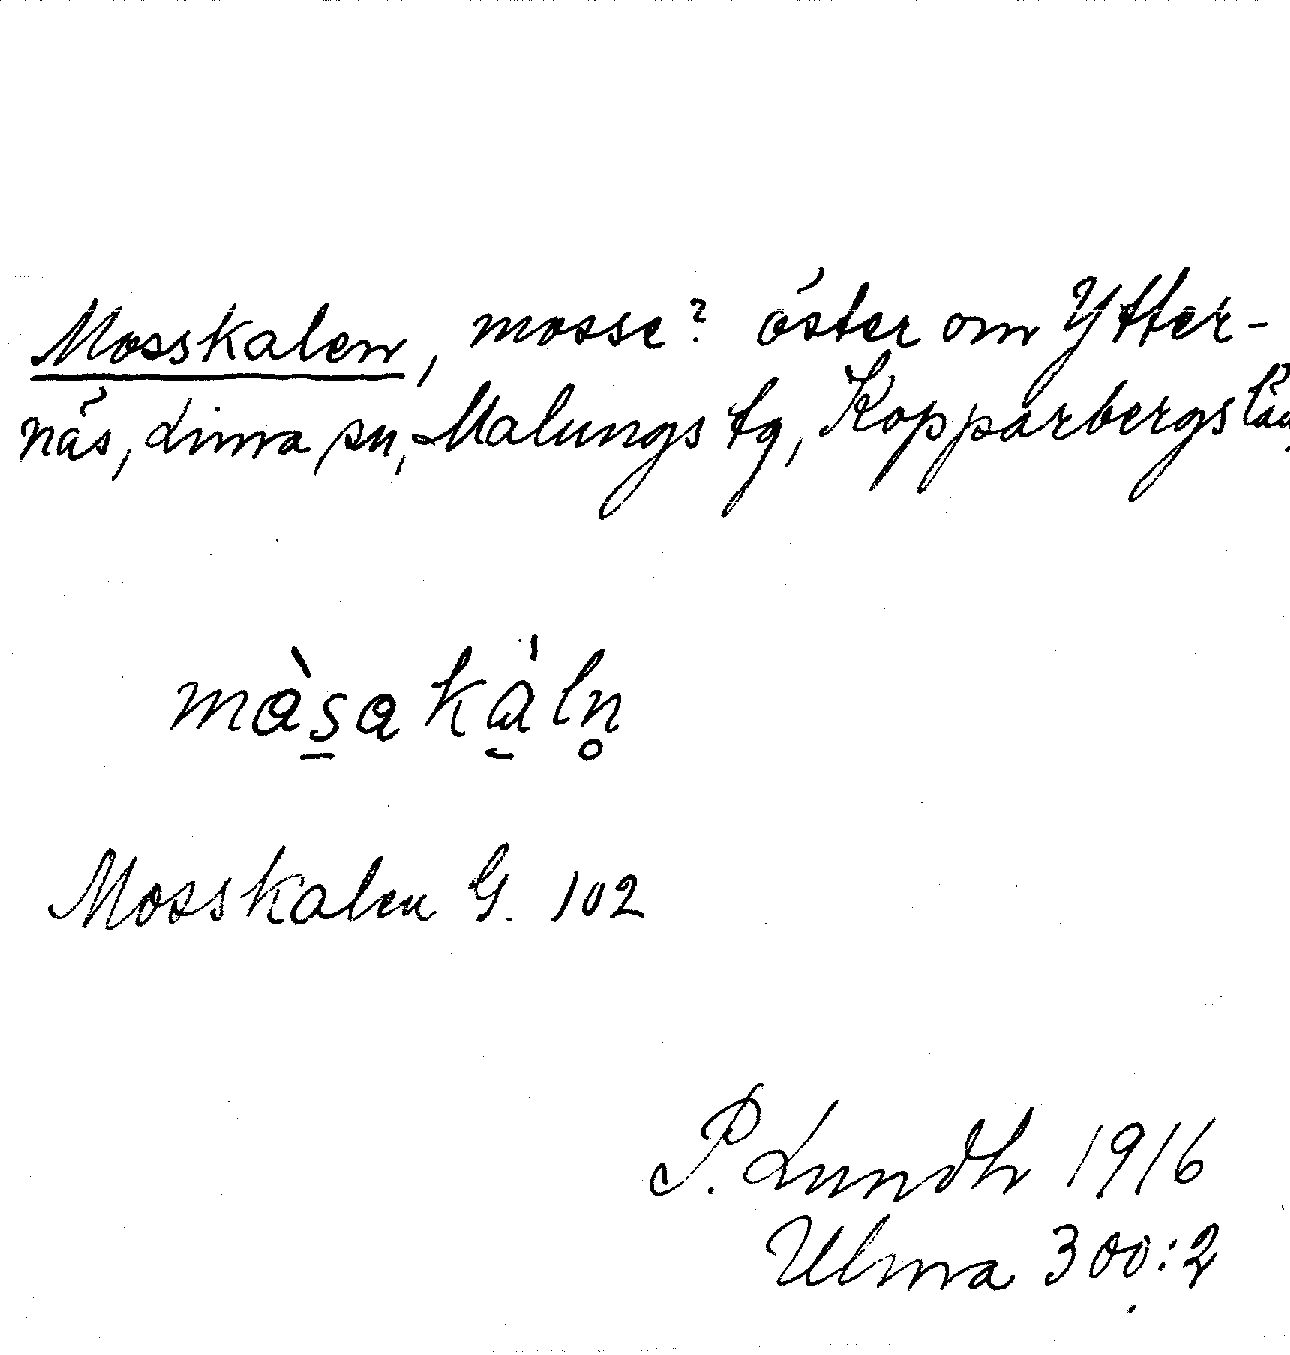 Mosskalen, mosse? öster om Ytter-
näs, Lima sn, Malungs tg, Kopparbergs län
màs̠akà̠ln̥
Mosskalen G. 102
P. Lundh 1916
Ulma 300:2